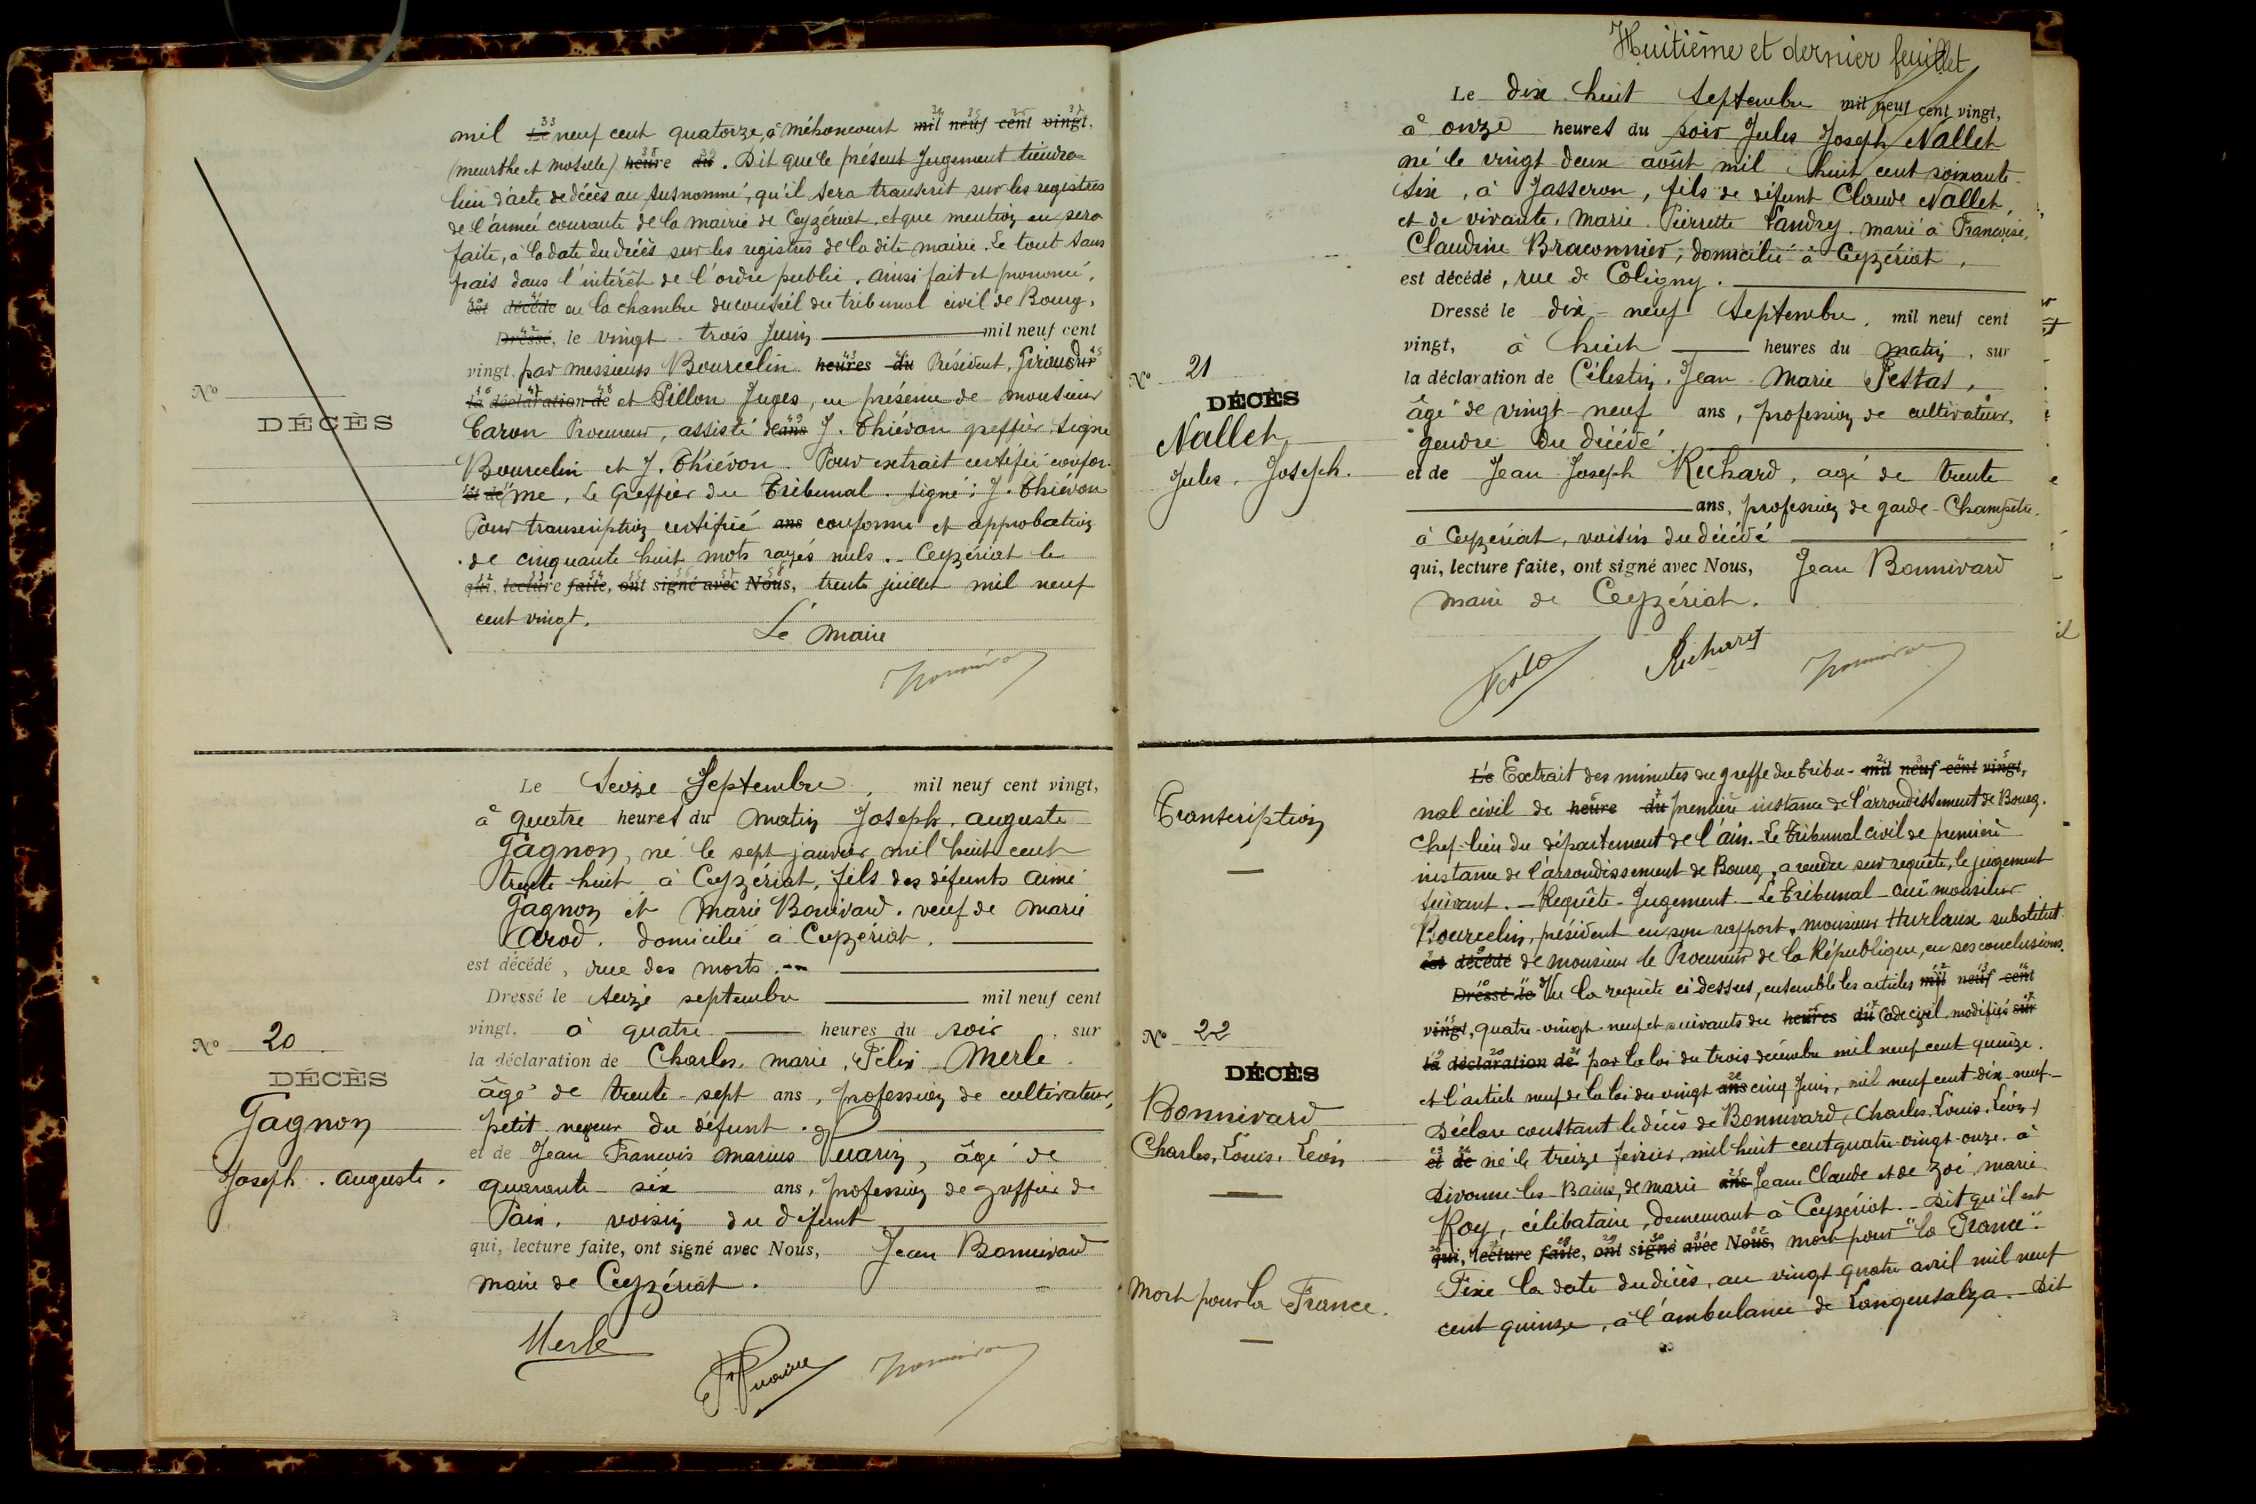 mil Le neuf cent quatorze, à Méhoncourt mil neuf cent vingt,
(Meurthe et Moselle) heure du. Dit que le présent Jugement tiendra
lieu d'acte de décès au susnommé, qu'il sera transcrit sur les registres
de l'année courante de la mairie de Ceyzériat, et que mention en sera
faite, à la date du décès sur les registres de la dite mairie. Le tout sans
frais dans l'intérêt de l'ordre public. Ainsi fait et prononcé,
est décédé en la chambre du conseil du tribunal civil de Bourg,
Dressé, le vingt-trois Juin mil neuf cent
vingt, par messieurs Bourcelin heures du Président, Giraud sur
la déclaration de et Pillon Juges, en présence de monsieur
Caron Procureur, assisté de ans J. Thiévon greffier Signé
Bourcelin et J. Thiévon. Pour extrait certifié confor-
et de me. Le Greffier du Tribunal. signé: J. Thiévon
Pour transcription certifiée ans conforme et approbation
de cinquante huit mots rayés nuls. Ceyzériat le
qui, lecture faite, ont signé avec Nous, trente juillet mil neuf
cent vingt.
Le Maire
N°
DÉCÈS
Le Seize Septembre, mil neuf cent vingt,
à quatre heures du matin Joseph. Auguste
Gagnon, né le sept janvier mil huit cent
trente-huit à Ceyzériat, fils des défunts Aimé
Gagnon et Marie Bonivard. veuf de Marie
Arod. domicilié à Ceyzériat.
est décédé, rue des morts.
Dressé le seize septembre mil neuf cent
vingt, à quatre heures du soir, sur
la déclaration de Charles, Marie, Félix Merle.
âgé de trente-sept ans, profession de cultivateur,
petit neveu du défunt.
et de Jean Francois Marius Puarin, âgé de
quarante-six ans, profession de greffier de
Paix, voisin du défunt
qui, lecture faite, ont signé avec Nous, Jean Bonnivard
maire de Ceyzériat.
N° 20
DÉCÈS
Gagnon
Joseph. Auguste.
Merle
Huitième et dernier feuillet
Le dix-huit Septembre mil neuf cent vingt,
à onze heures du soir Jules Joseph Nallet
né le vingt-deux août mil huit cent soixante-
six, à Jasseron, fils de défunt Claude Nallet,
et de vivante, Marie Pierrette Landrey. marié à Francoise,
Claudine Braconnier, domicilié à Ceyzériat,
est décédé, rue de Coligny.
Dressé le dix-neuf Septembre, mil neuf cent
vingt, à huit heures du matin, sur
la déclaration de Célestin, Jean Marie Pestas,
âgé de vingt-neuf ans, profession de cultivateur,
gendre du décédé
et de Jean-Joseph Richard, agé de trente
ans, profession de garde-Champêtre.
à Ceyzériat, voisin du décédé
qui, lecture faite, ont signé avec Nous, Jean Bonnivard
maire de Ceyzériat.
N° 21
DÉCÈS
Nallet
Jules, Joseph.
Richard
Transcription
Le Extrait des minutes du greffe du Tribu- mil neuf cent vingt,
nal civil de heure du première instance de l'arrondissement de Bourg.
Chef-lieu du département de l'Ain. Le Tribunal civil de première
instance de l'arrondissement de Bourg, a rendu sur requête, le jugement
suivant. - Requête - Jugement - Le Tribunal - ouï monsieur
Bourcelin, président en son rapport, monsieur Hurlaux substitut
est décédé de monsieur le Procureur de la République, en ses conclusions.
Dressé le Vu la requête ci dessus, ensemble les articles mil neuf cent
vingt, quatre-vingt neuf et suivants du heures du Code civil, modifiés sur
la déclaration de par la loi du trois décembre mil neuf cent quinze.
et l'article neuf de la loi du vingt ans cinq Juin, mil neuf cent dix-neuf-
Déclare constant le décès de Bonnivard, Charles, Louis, Léon,
et de né le treize février, mil huit cent quatre-vingt-onze. à
Divonne-les-Bains, de Marie ans Jean Claude et de Zoé Marie
Roy, célibataire, demeurant à Ceyzériat. - Dit qu'il est
qui, lecture faite, ont signé avec Nous, mort pour "la France"
Fixe la date du décès, au vingt quatre avril mil neuf
cent quinze, à l'ambulance de Langensalza. Dit
N° 22
DÉCÈS
Bonnivard
Charles, Louis, Léon
Mort pour la France.